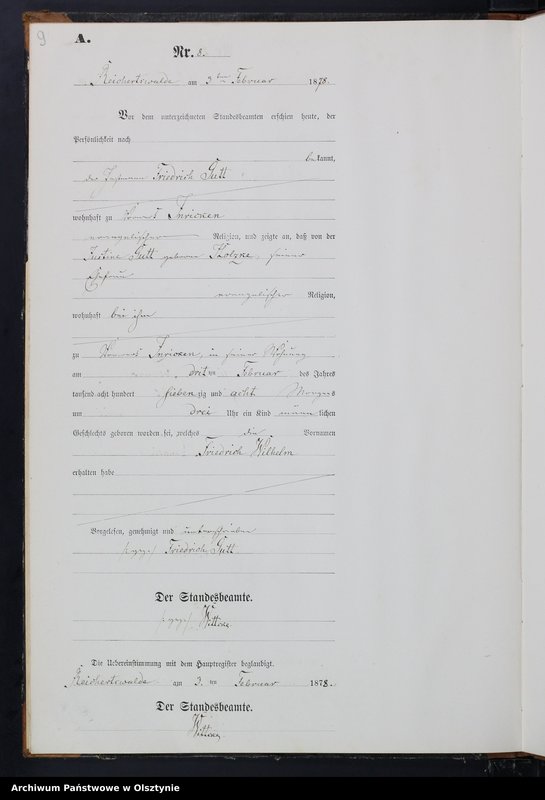 9
A.
Nr. 8.
Reichertswalde am 3ten Februar 1878.
Vor dem unterzeichneten Standesbeamten erschien heute, der
Persönlichkeit nach
bekannt,
der Instmann Friedrich Gutt
wohnhaft zu Vorwerk Inrucken
evangelischer Religion, und zeigte an, daß von der
Justine Gutt geboren seiner
Ehefrau
evangelischer Religion,
wohnhaft bei ihm
zu Vorwerk in seiner Wohnung
am dritten Februar des Jahres
tausend acht hundert siebenzig und acht Morgens
um drei Uhr ein Kind männlichen
Geschlechts geboren worden sei, welches die Vornamen
Friedrich Wilhelm
erhalten habe
Vorgelesen, genehmigt und unterschrieben
/:gez:/ Friedrich Gutt
Der Standesbeamte.
/:gez:/
Die Uebereinstimmung mit dem Hauptregister beglaubigt.
Reichertswalde am 3.ten Februar 1878.
Der Standesbeamte.
Archiwum Państwowe w Olsztynie